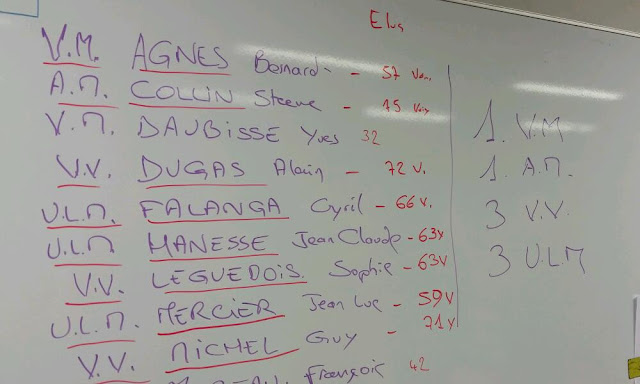 Elus
V.M. AGNES Bernard - 57 Voix
A.M. COLLIN Steeve - 75 Voix
V.M. DAUBISSE Yves 32
V.V. DUGAS Alain - 72 V.
U.L.M. FALANGA Cyril - 66 V.
U.L.M MANESSE Jean Claude - 63V
V.V. LEGUEDOIS Sophie - 63V
U.L.M. MERCIER Jean Luc - 59V
V.V. MICHEL Guy - 71V
François 42
1. V.M
1. A.M.
3 V.V.
3 U.L.M